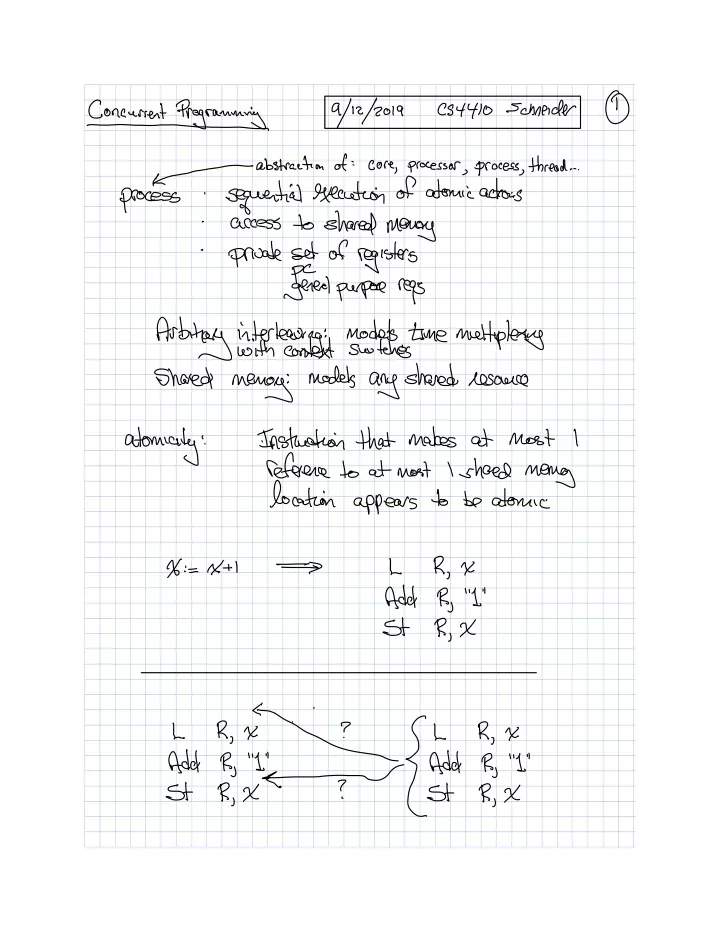 Concurrent Programming 9/12/2019 CS4410 Schneider 1
abstraction of: core, processor, process, thread...
process · sequential execution of atomic actions
· access to shared memory
· private set of registers
pc
general purpose regs
Arbitrary interleaving: models time multiplexing
with context switches
Shared memory: models any shared resource
atomicity: Instruction that makes at most 1
reference to at most 1 shared memory
location appears to be atomic
x := x+1 ⟹ L R, x
Add R, "1"
St R, x
L R, x ? L R, x
Add R, "1" Add R, "1"
St R, x ? St R, x